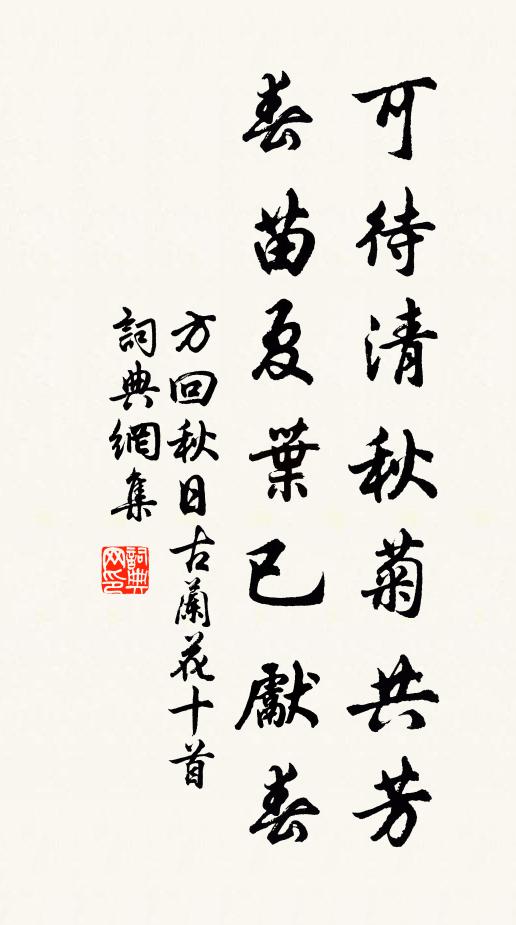 可待清秋菊共芳
春苗夏葉已獻春
方回秋日古蘭花十首
詞典網集
詞典網印